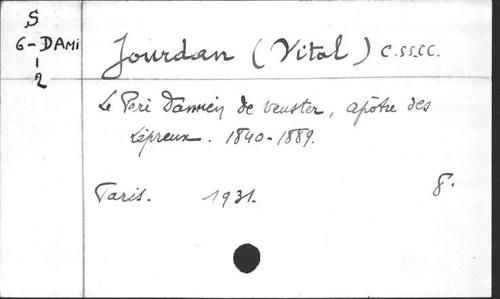 S
6-DAMi
1
2
Jourdan (Vital) C.SS.CC.
Le Père Damien de veuster, apôtre des
Lépreux. 1840-1889.
Paris. 1931. 8°.